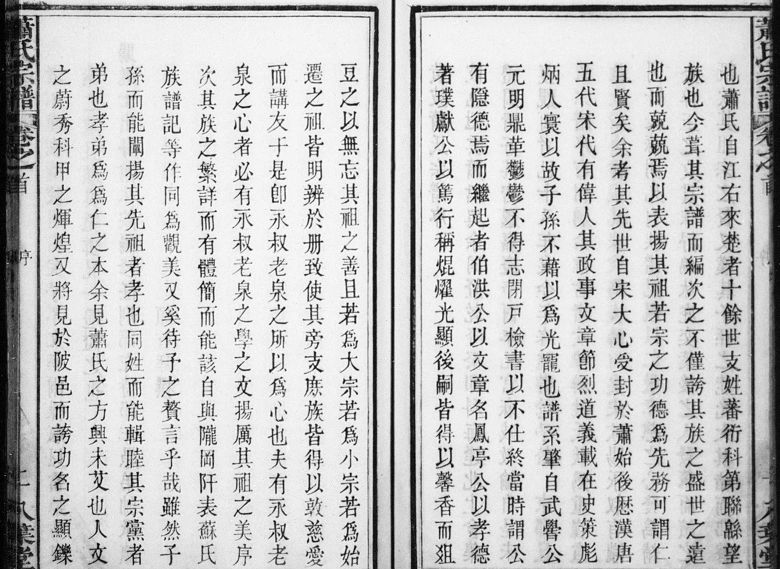 蕭氏宗譜
卷之首
也蕭氏自江右來楚者十餘世支姓蕃衍科第聯緜望
族也今葺其宗譜而編次之不僅誇其族之盛世之遠
也而兢兢焉以表揚其祖若宗之功德爲先務可謂仁
且賢矣余考其先世自宋大心受封於蕭始後歷漢唐
五代宋代有偉人其政事文章節烈道義載在史策彪
炳人寰以故子孫不藉以爲光寵也譜系肇自武嚳公
元明鼎革鬱鬱不得志閉戸檢書以不仕終當時謂公
有隱德焉而繼起者伯洪公以文章名鳳亭公以孝德
著璞獻公以篤行稱焜燿光顯後嗣皆得以馨香而俎
豆之以無忘其祖之善且若爲大宗若爲小宗若爲始
遷之祖皆明辨於册致使其旁支庶族皆得以敦慈愛
而講友于是卽永叔老泉之所以爲心也夫有永叔老
泉之心者必有永叔老泉之學之文揚厲其祖之美序
次其族之繁詳而有體簡而能該自與隴岡阡表蘇氏
族譜記等作同爲觀美又奚待予之贅言乎哉雖然子
孫而能闡揚其先祖者孝也同姓而能輯睦其宗黨者
弟也孝弟爲爲仁之本余見蕭氏之方興未艾也人文
之蔚秀科甲之煇煌又將見於陂邑而誇功名之顯鑠
蕭氏宗譜
卷之首
序
八葉堂